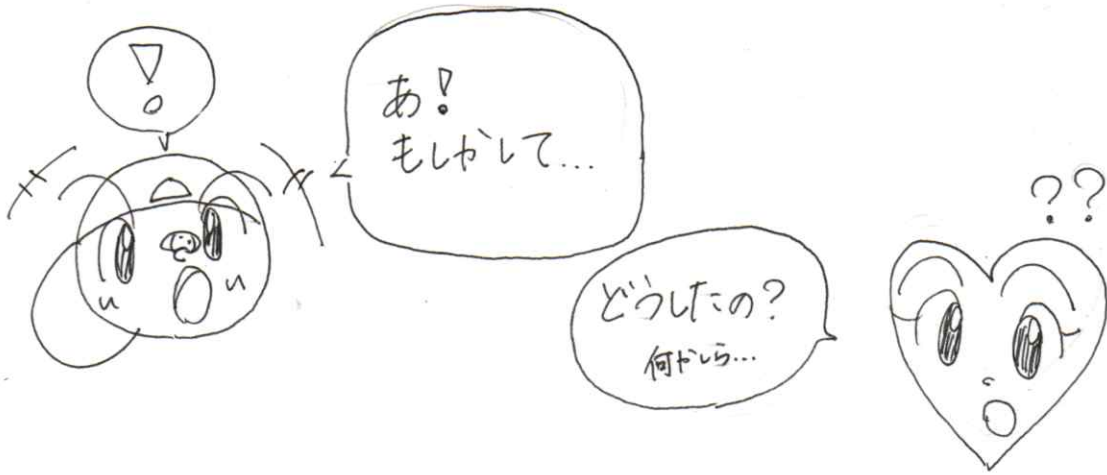 !
あ!
もしかして...
??
どうしたの?
何かしら...